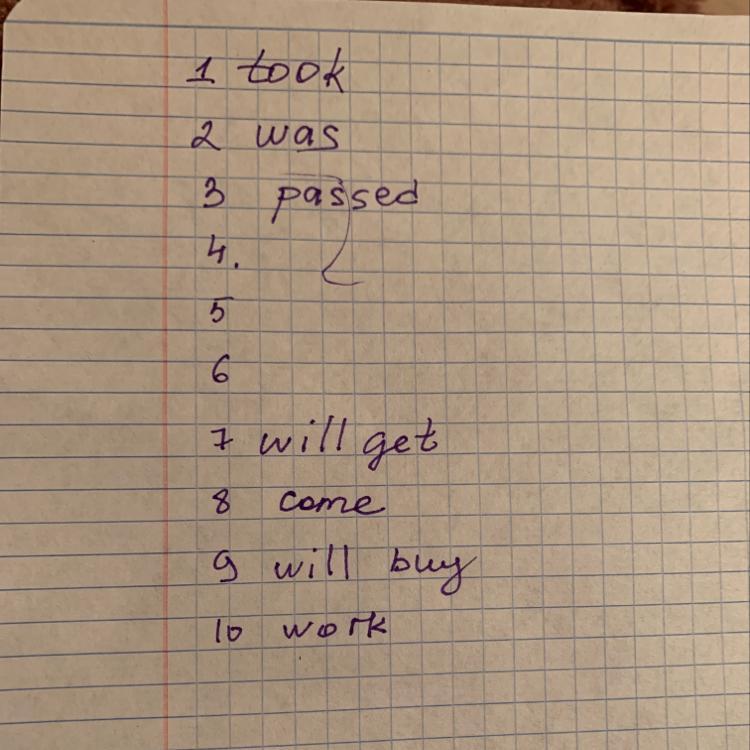 1 took
2 was
3 passed
4.
5
6
7 will get
8 come
9 will buy
10 work